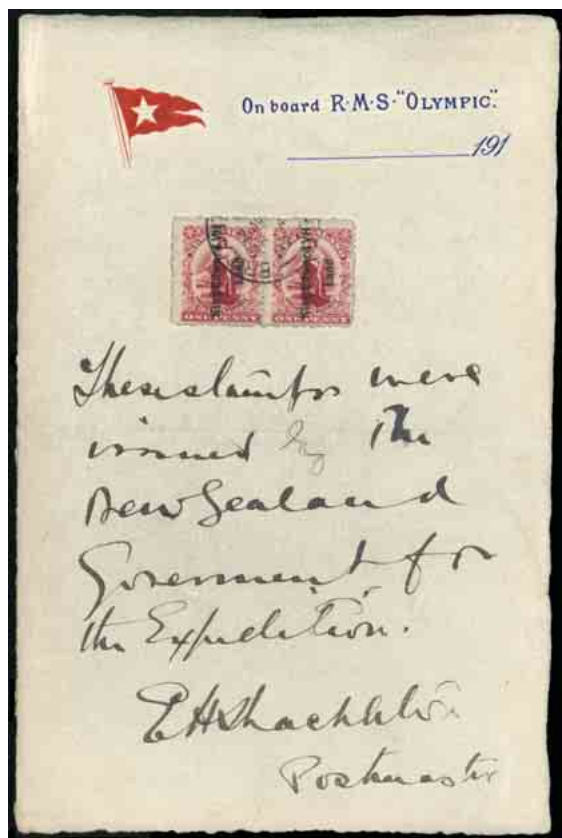 On board R·M·S·"OLYMPIC".
191
ONE PENNY ONE PENNY
These stamps were
issued by the
New Zealand
Government for
the Expedition.
E H Shackleton
Postmaster